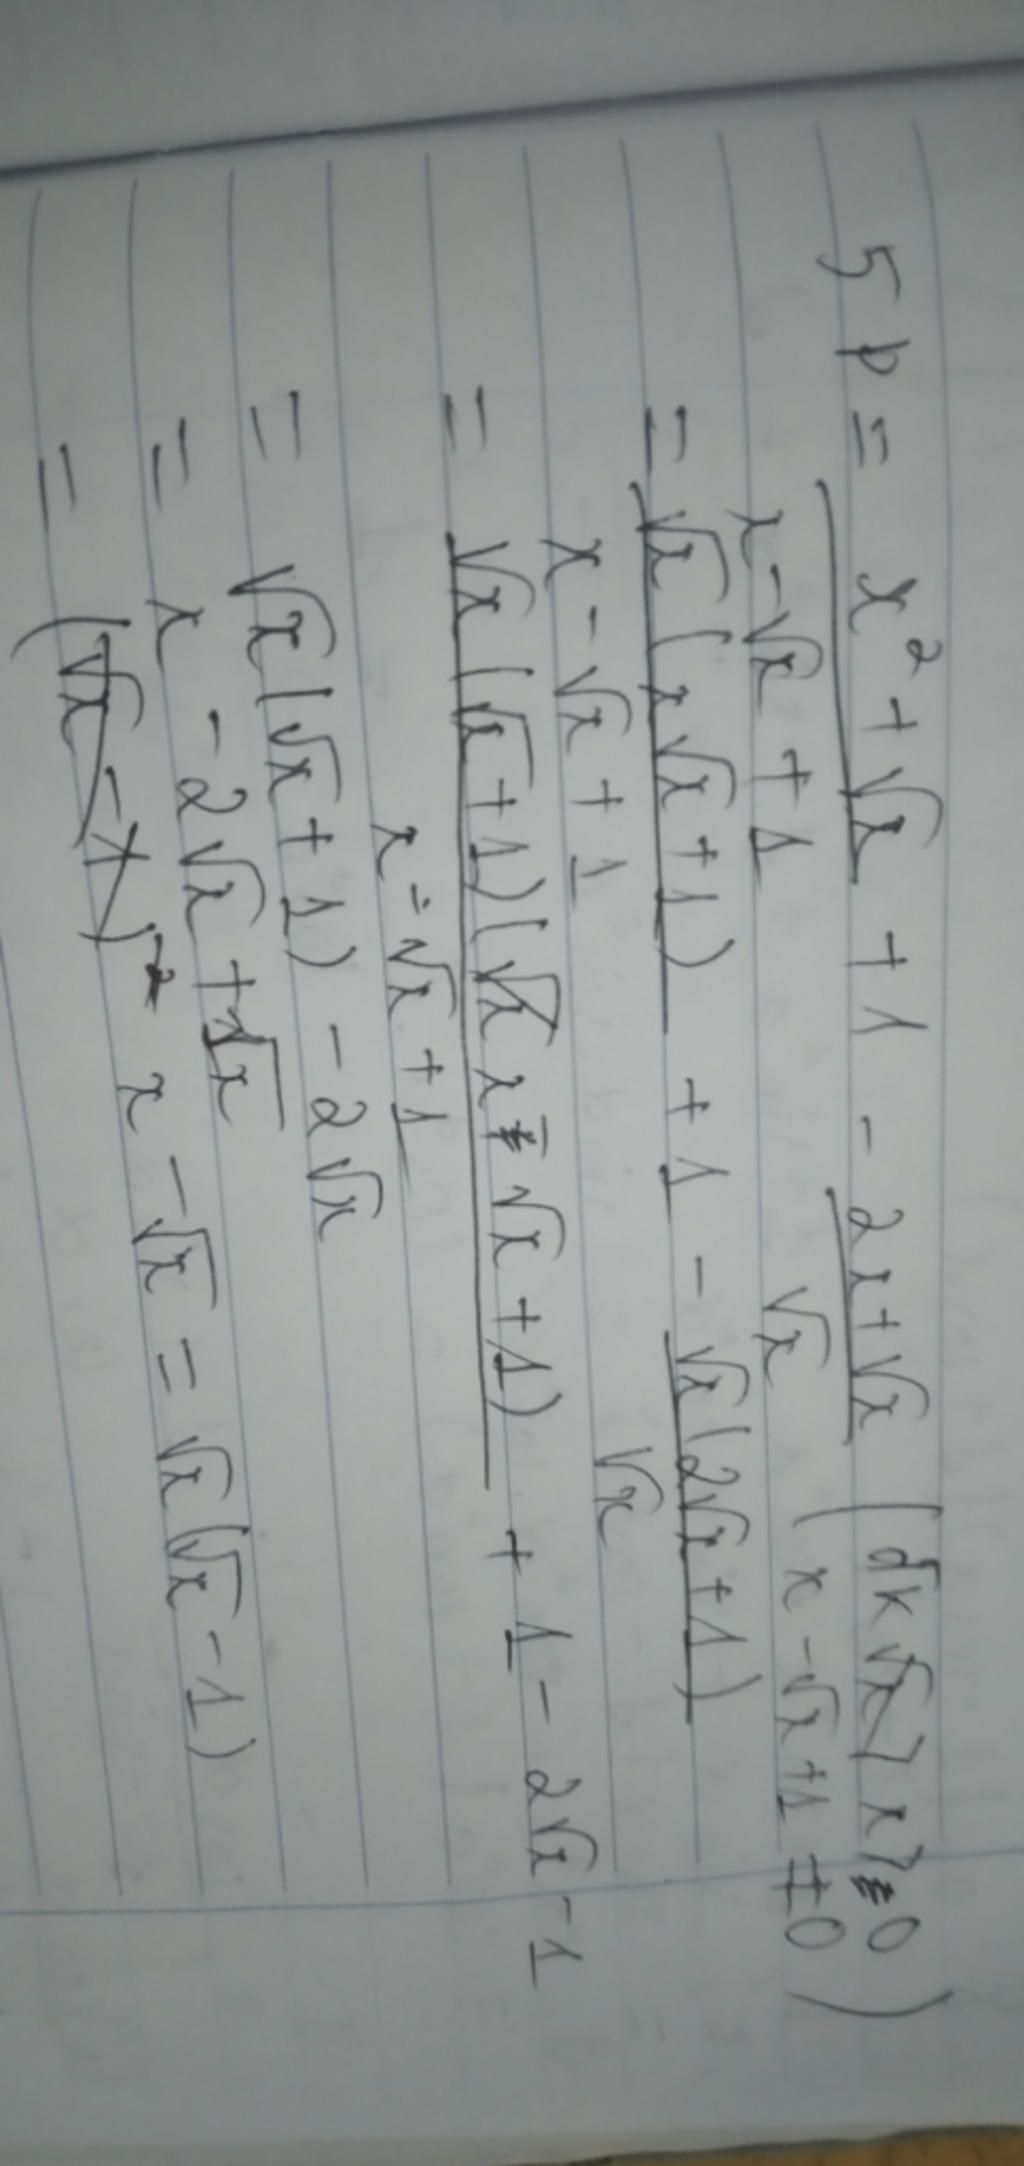 5 P = x² + √x + 1 - 2x + √x (đk √x > x > 0
x - √x + 1 √x x - √x + 1 ≠ 0 )
= √x ( x√x + 1 ) + 1 - √x ( 2√x + 1 )
x - √x + 1 √x
= √x ( √x + 1 ) ( x - √x + 1 ) + 1 - 2√x - 1
x - √x + 1
= √x ( √x + 1 ) - 2√x
= x - 2√x + √x
= x - √x = √x ( √x - 1 )